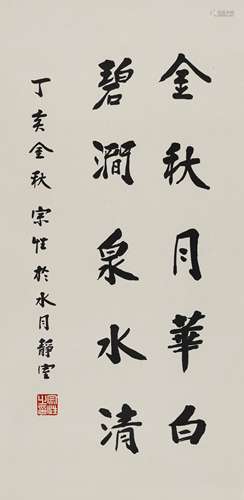 金秋月華白
碧澗泉水清
丁亥金秋 宗性於水月靜室